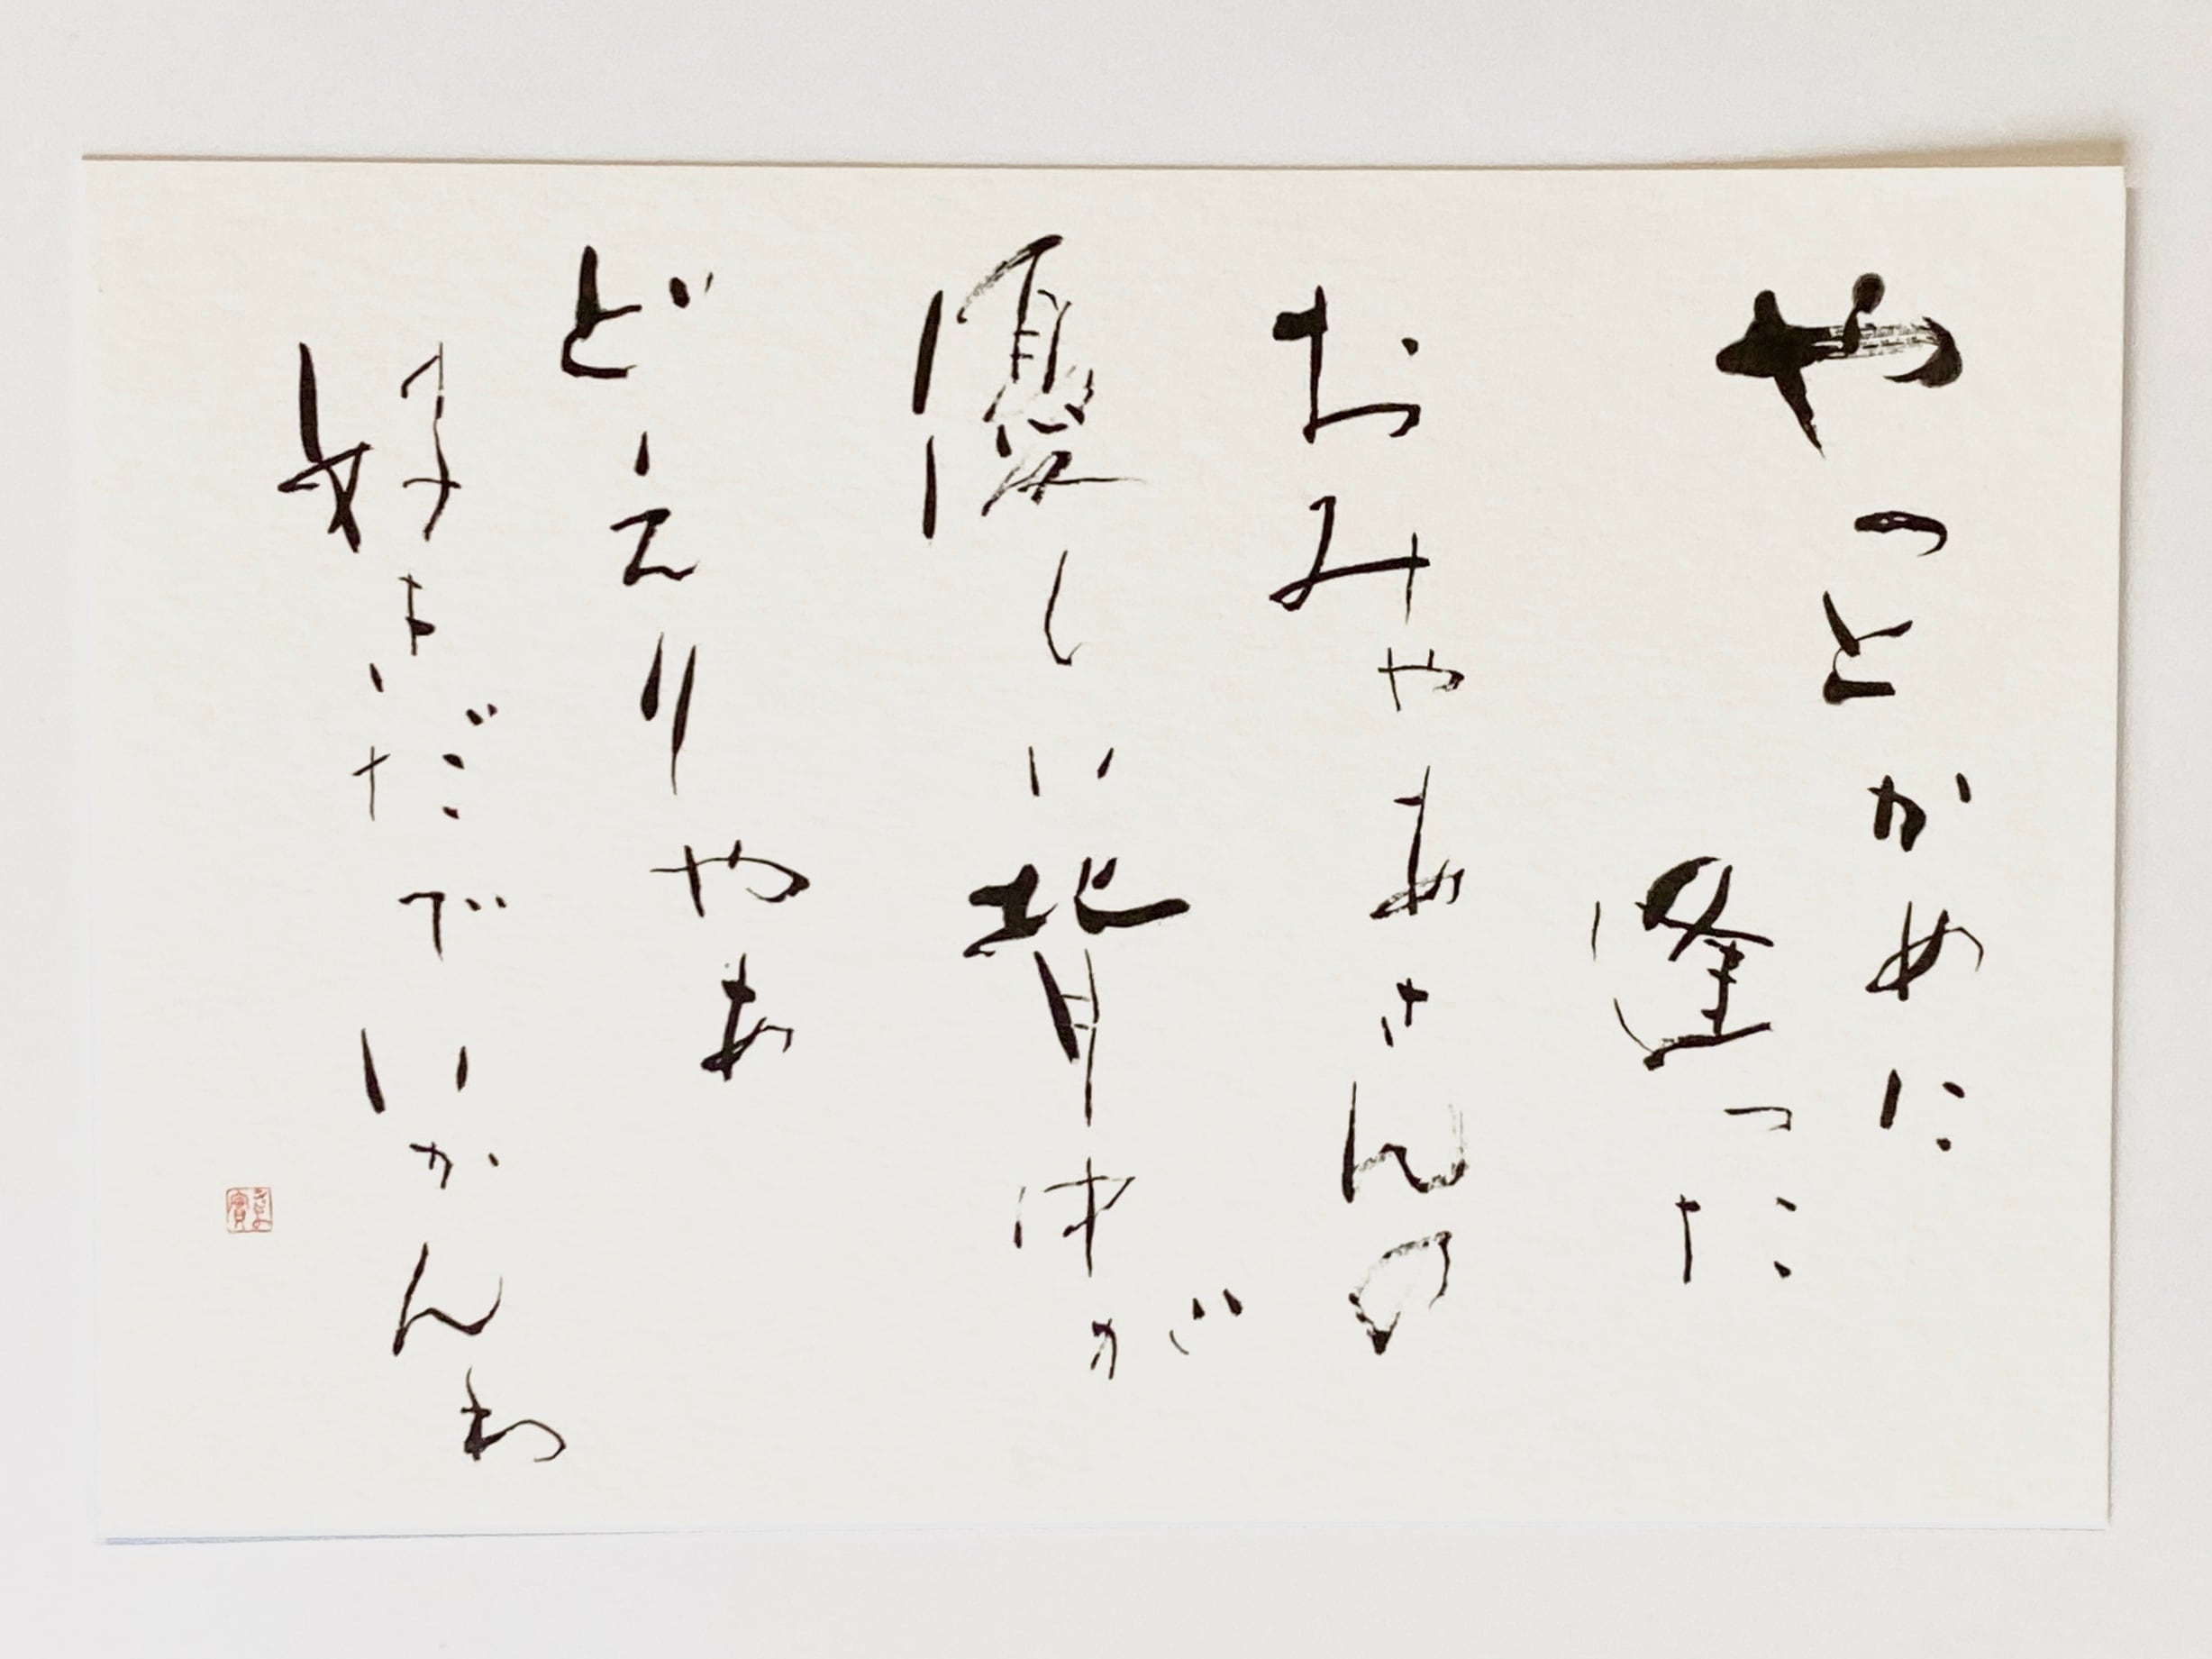 やっとかめに
逢った
おみゃあさんの
優しい背中が
どえりゃあ
好きだでいかんわ